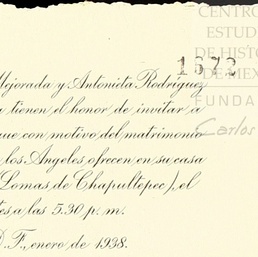 CENTRO
ESTUD
DE HISTO
DE MEX
FUNDA
Carlos
1672
Mejorada y Antonieta Rodríguez
tienen el honor de invitar a
que con motivo del matrimonio
los Angeles ofrecen en su casa
Lomas de Chapultepec), el
a las 5.30 p. m.
D. F., enero de 1938.